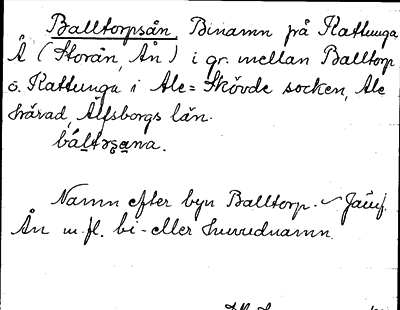 Balltorpsån Binamn på Kattunga
Å (Storån, Ån) i gr. mellan Balltorp
o. Kattunga i Ale=Skövde socken, Ale
härad, Älfsborgs län.
Namn efter byn Balltorp. ~ Jämf.
Ån m.fl. bi- eller huvudnamn.